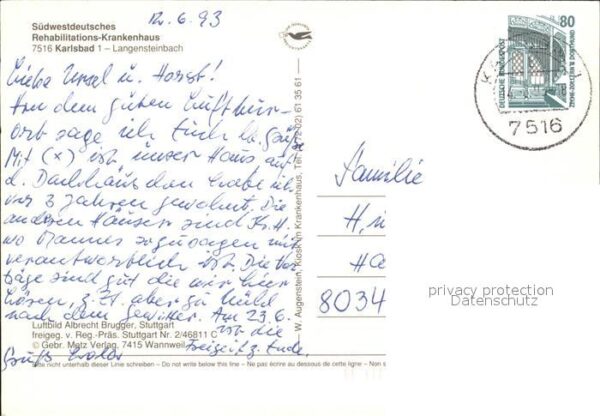 12.6.93
Südwestdeutsches
Rehabilitations-Krankenhaus
7516 Karlsbad 1 – Langensteinbach
Liebe Ursel u. Horst!
Von dem guten Luftkur-
ort sage ich Euch lb. Grüße
Mit (x) ist unser Haus auf
d. Dachhäuschen habe ich
vor 3 Jahren gewohnt. Die
anderen Häuser sind Kr. H.
wo Mannus sozusagen mit
verantwortlich ist. Die Vor
träge sind gut die wir hier
hören, z. Zt. aber zu kühl
nach dem Gewitter. Am 23.6.
ist die
Freizeit z. Ende.
Gruß
Luftbild Albrecht Brugger, Stuttgart
freigeg. v. Reg.-Präs. Stuttgart Nr. 2/46811 C
© Gebr. Metz Verlag, 7415 Wannweil
Bitte nicht unterhalb dieser Linie schreiben – Do not write below this line – Ne pas écrire au dessous de cette ligne – Non
W. Augenstein, Kiosk im Krankenhaus, Tel. (0 72 02) 61 35 61
80
DEUTSCHE BUNDESPOST
ZECHE ZOLLERN II DORTMUND
7516
Familie
H
Ha
8034
privacy protection
Datenschutz